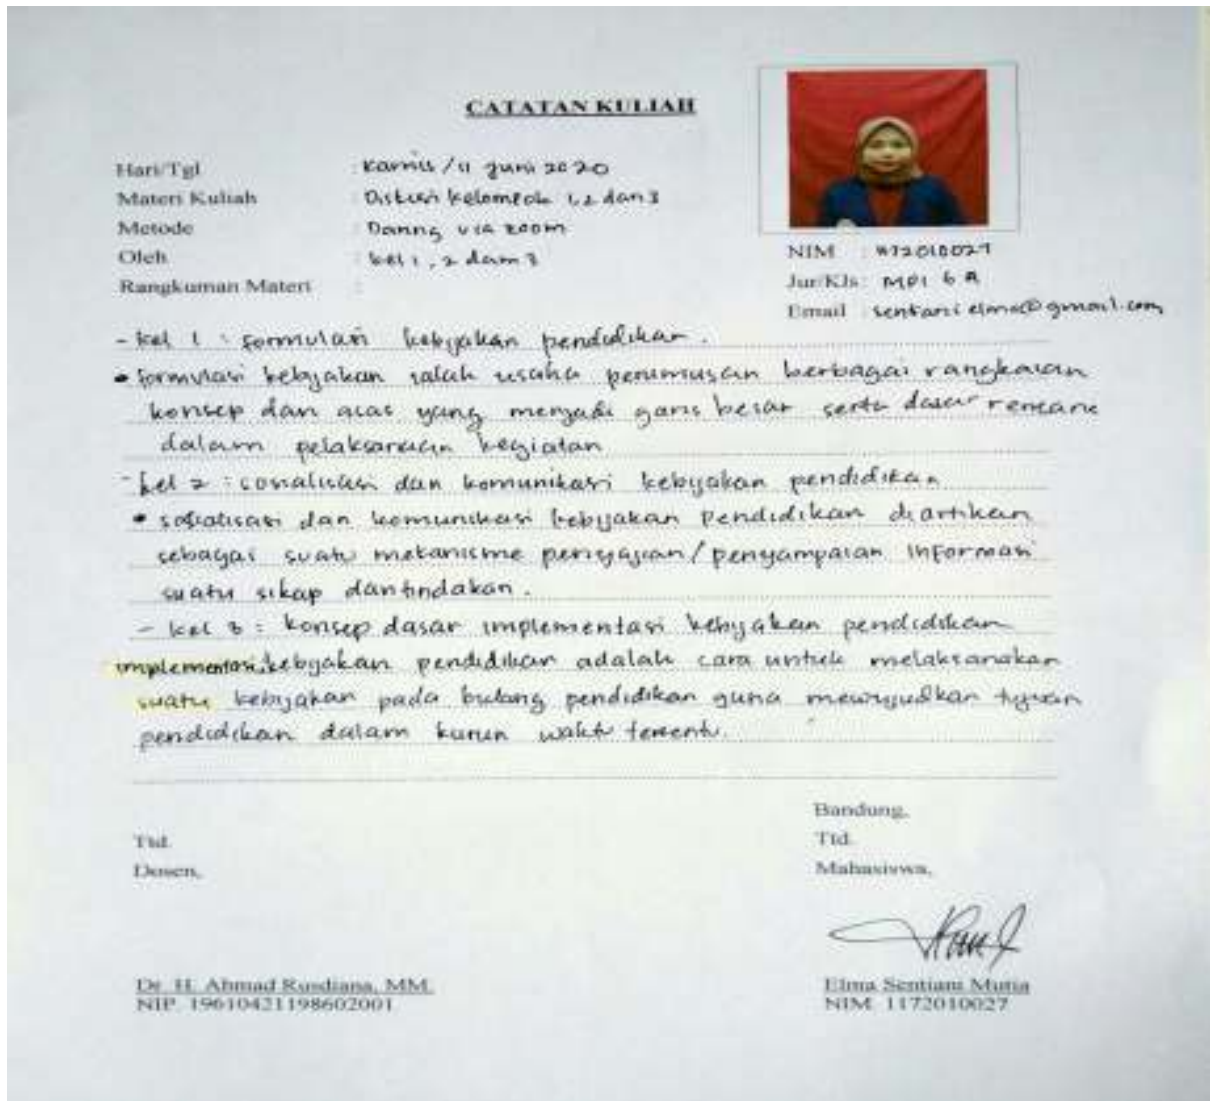 CATATAN KULIAH
Hari/Tgl : Kamis / 11 Juni 2020
Materi Kuliah : Diskusi kelompok 1, 2 dan 3
Metode : Daring via zoom
Oleh : kel 1, 2 dan 3
Rangkuman Materi :
NIM : 1172010027
Jur/Kls: MPI 6 A
Email : sentani elma@gmail.com
- kel 1 : formulasi kebijakan pendidikan.
• formulasi kebijakan ialah usaha perumusan berbagai rangkaian
konsep dan asas yang menjadi garis besar serta dasar rencana
dalam pelaksanaan kegiatan
- kel 2 : sosialisasi dan komunikasi kebijakan pendidikan
• sosialisasi dan komunikasi kebijakan Pendidikan diartikan
sebagai suatu mekanisme penyajian/penyampaian informasi
suatu sikap dan tindakan.
- kel 3 : konsep dasar implementasi kebijakan pendidikan
implementasi kebijakan pendidikan adalah cara untuk melaksanakan
suatu kebijakan pada bidang pendidikan guna mewujudkan tujuan
pendidikan dalam kurun waktu tertentu.
Bandung,
Ttd.
Mahasiswa,
Ttd.
Dosen,
Dr. H. Ahmad Rusdiana, MM.
NIP. 19610421198602001
Elma Sentiani Mutia
NIM. 1172010027